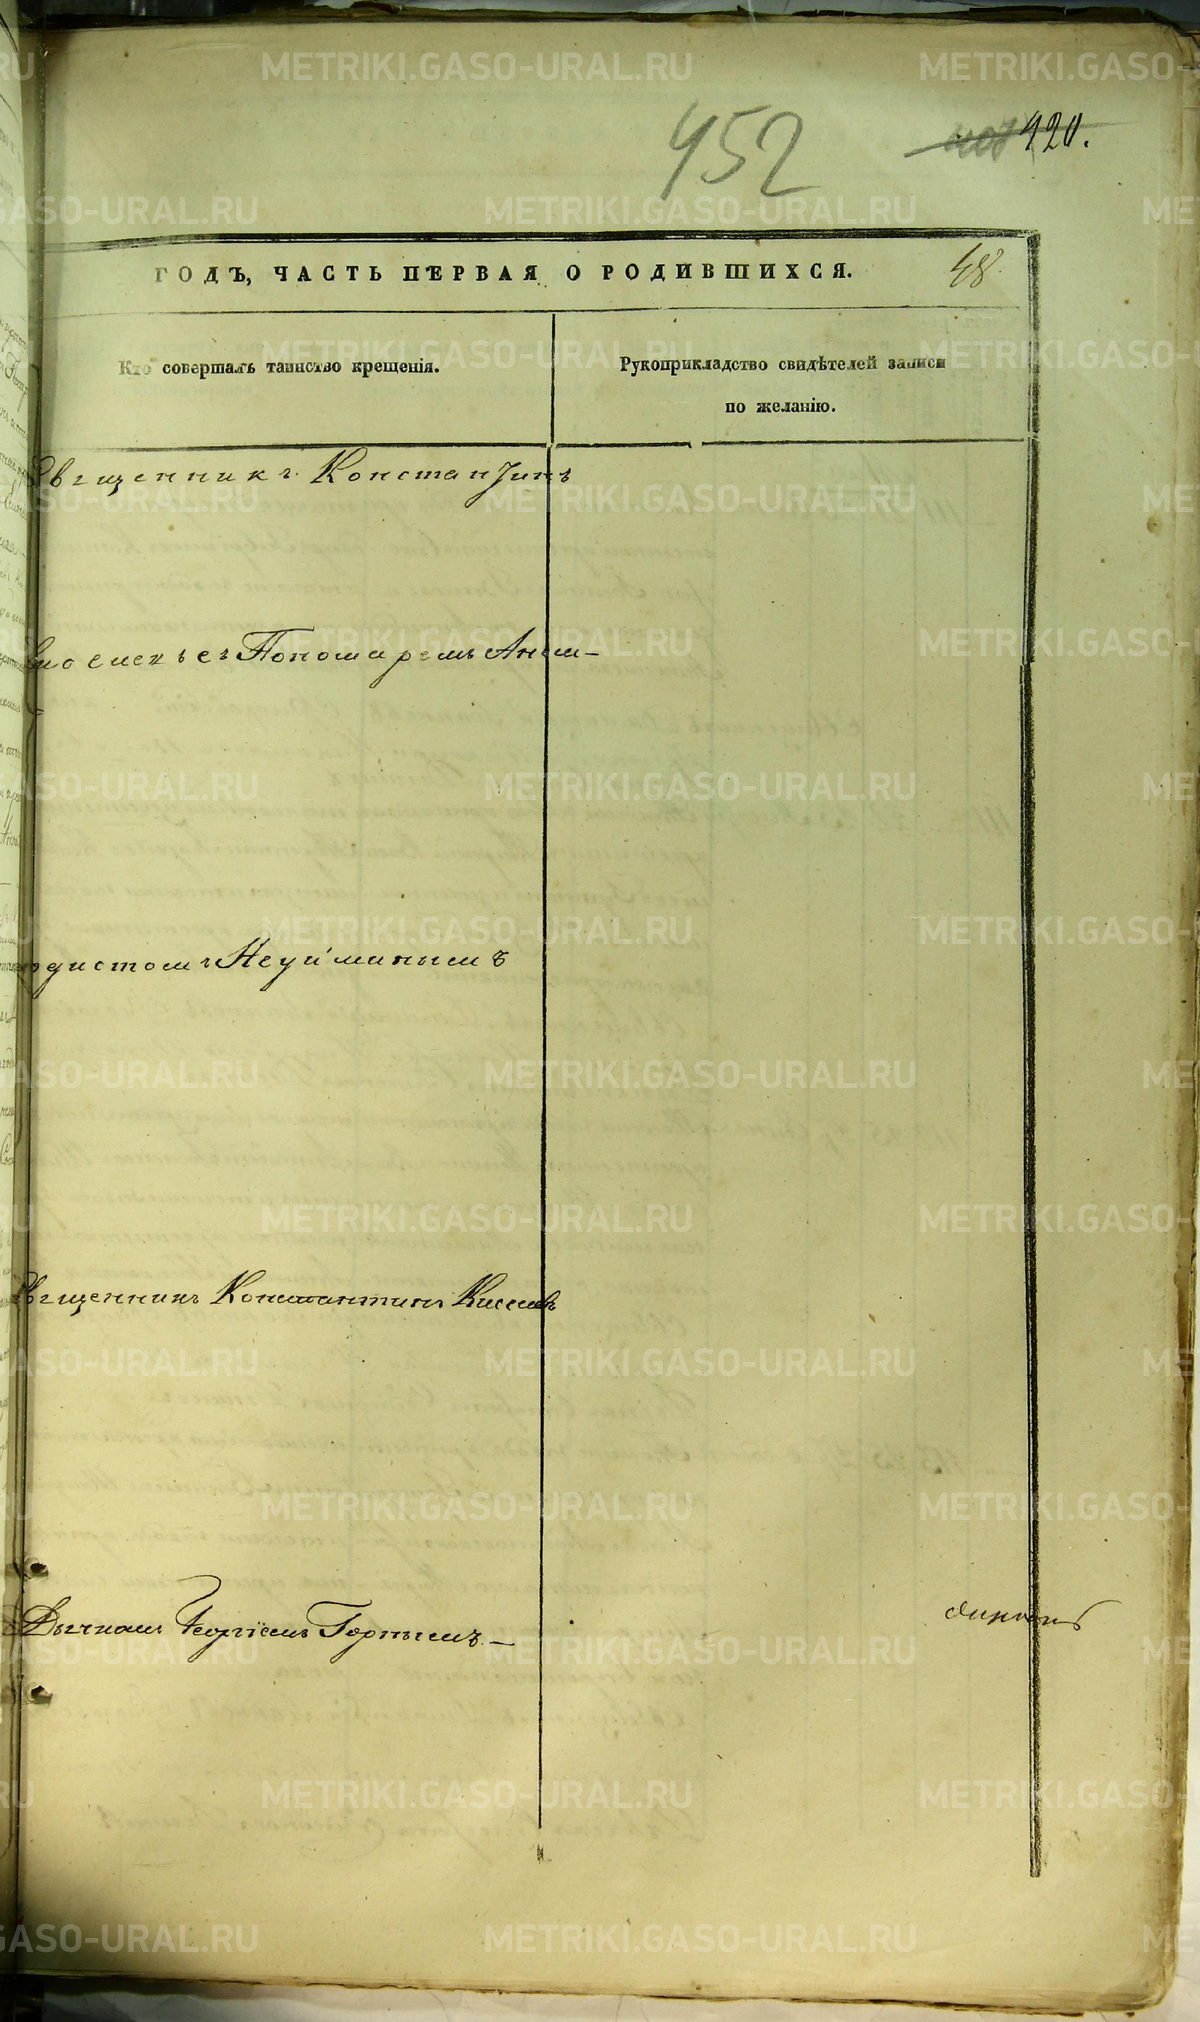 452
420.
ГОДЪ, ЧАСТЬ ПЕРВАЯ О РОДИВШИХСЯ.
48.
Кто совершалъ таинство крещенія.
Рукоприкладство свидѣтелей записи
по желанію.
Священникъ Константинъ
съ Пономаремъ Анем-
подистомъ Неуйминымъ
Священникъ Константинъ Киселевъ
Дьячкомъ Георгіемъ Горнымъ. —
METRIKI.GASO-URAL.RU